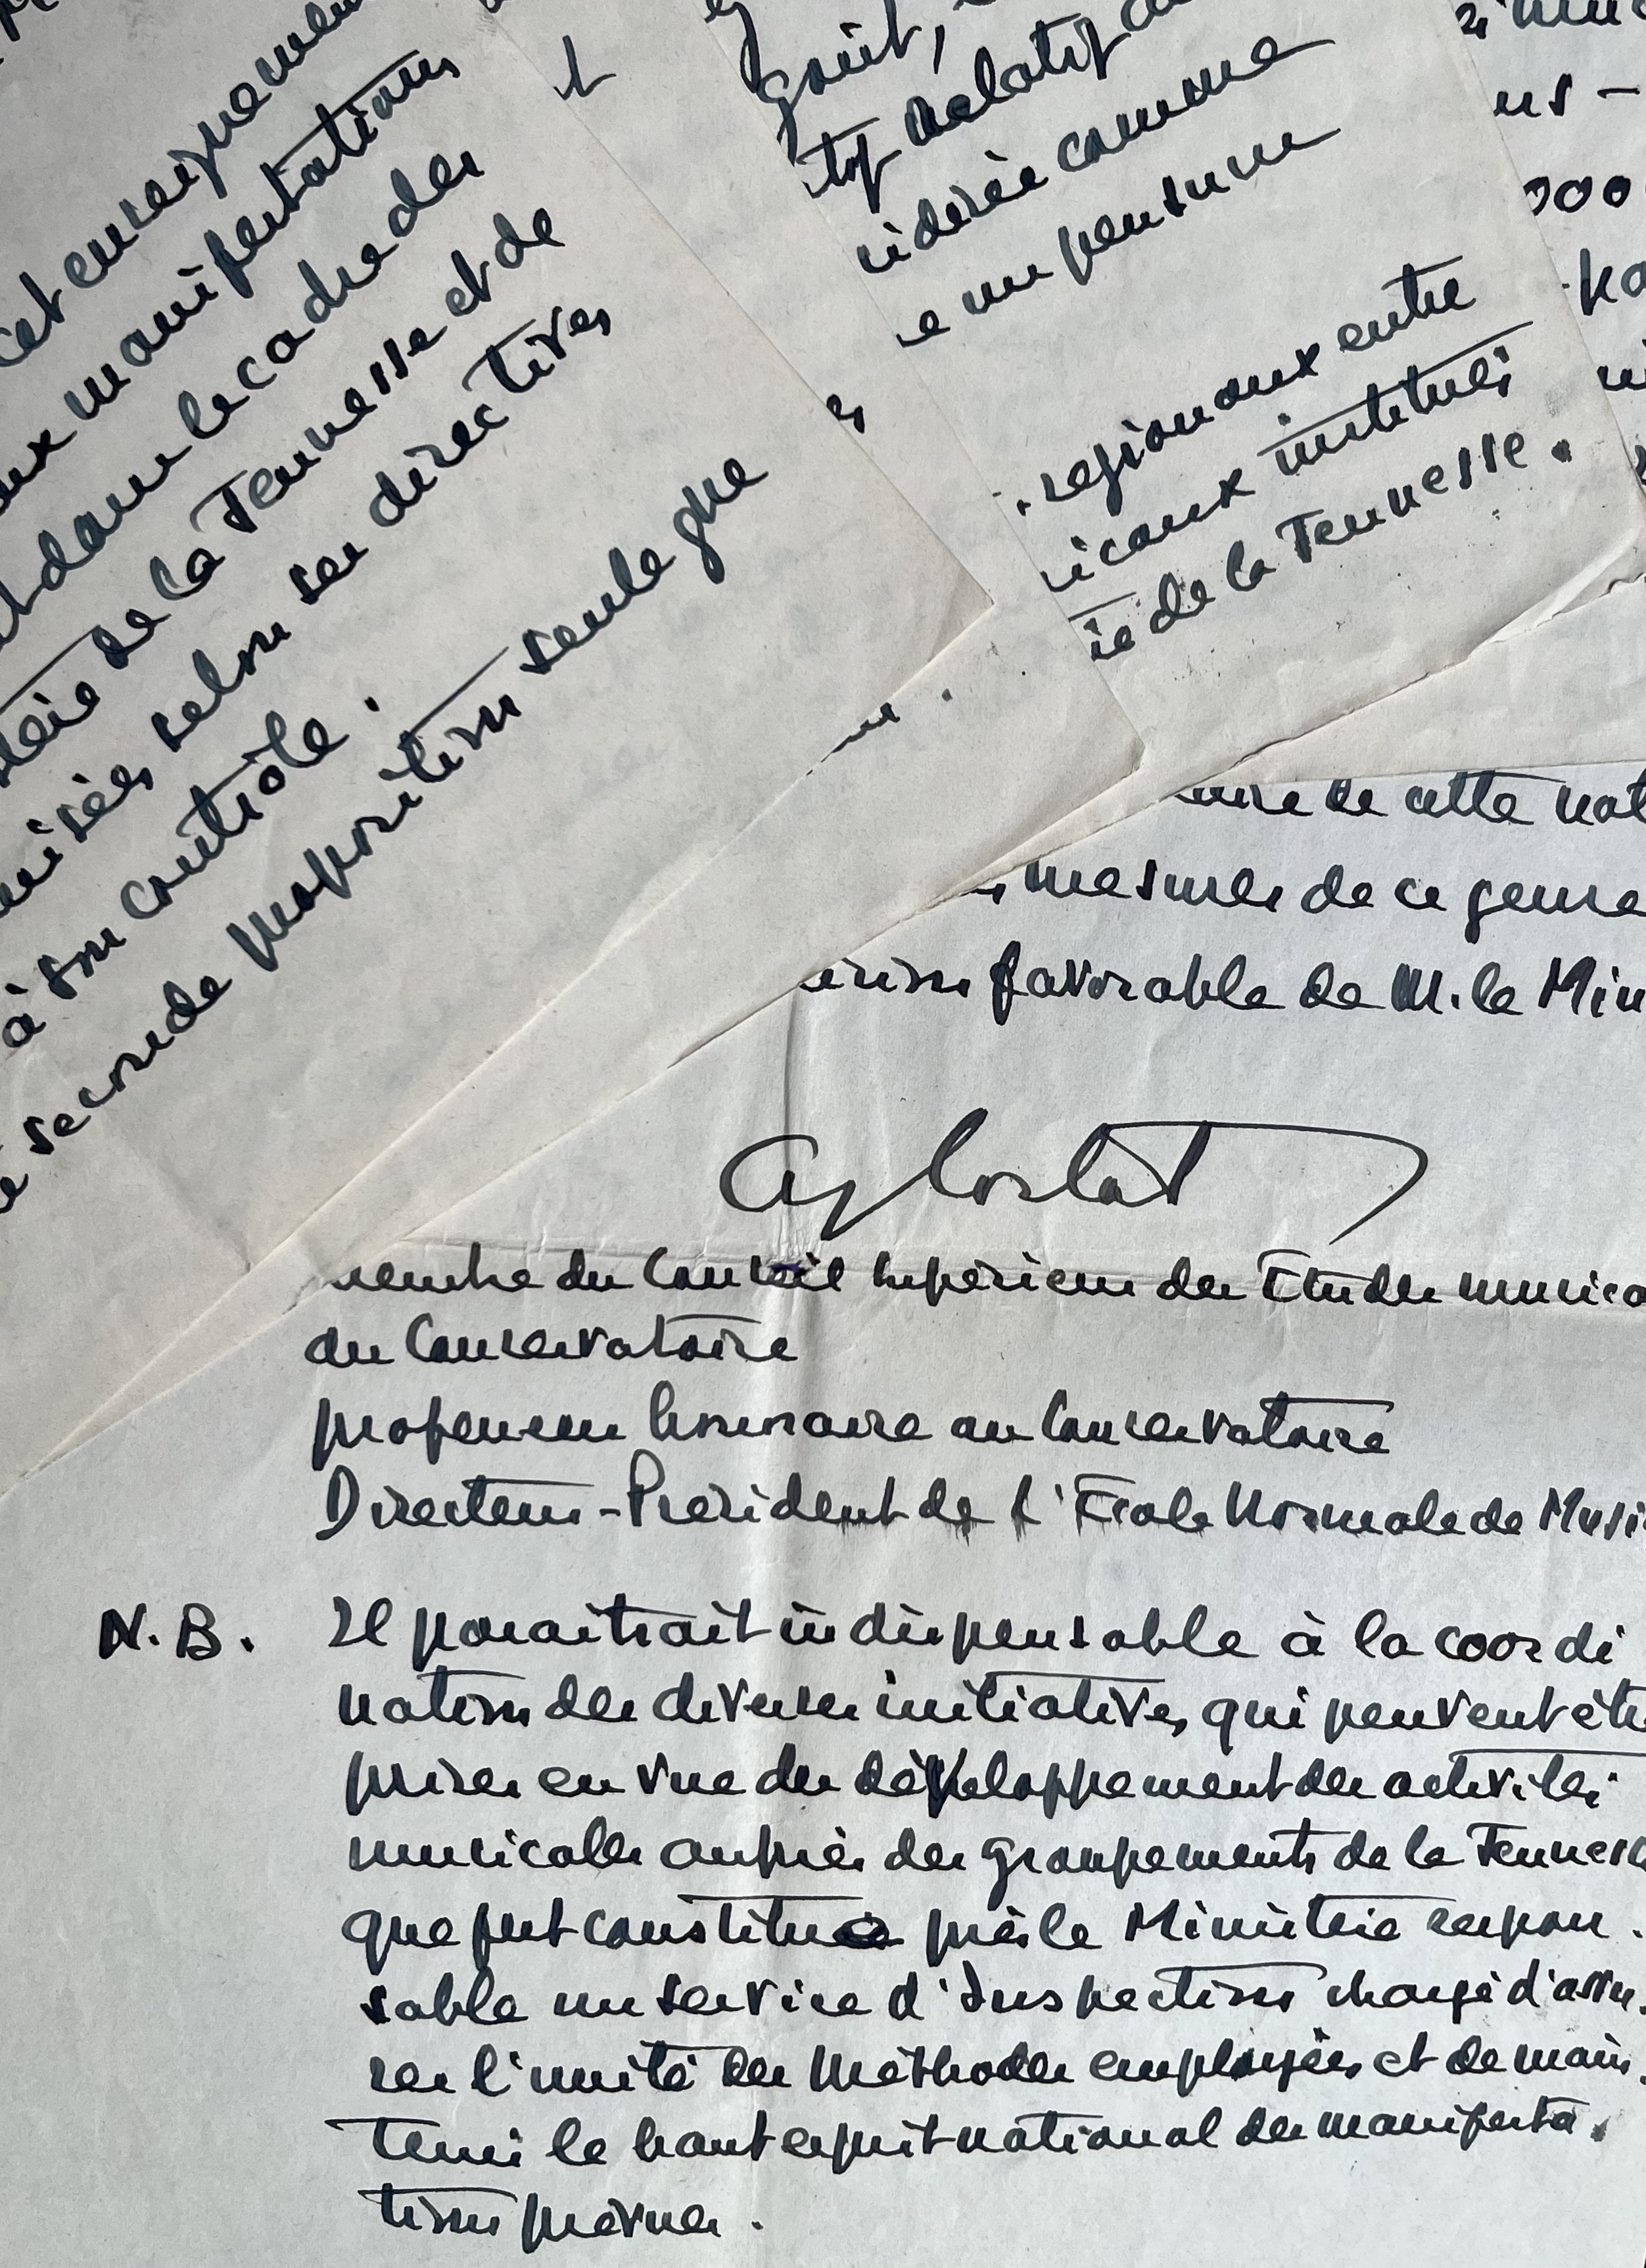 cet enseignemen
ux manifestations
t dans le cadre des
tère de la Jeunesse et de
nisées selon ses directives
à son contrôle.
seconde proposition seule que
t
es
goût,
top relatif
sidérée comme
e un pensum
régionaux entre
sicaux institués
ie de la Jeunesse.
ns -
000
ture de cette nat
s mesures de ce genre
cision favorable de M. le Min
A Cortot
membre du Conseil Supérieur des Etudes musica
du Conservatoire
professeur honoraire au Conservatoire
Directeur-Président de l'Ecole Normale de Musi
N.B. Il paraitrait indispensable à la coordi
nation des diverses initiatives qui peuvent êtr
prises en vue du développement des activités
musicales auprès des groupements de la Jeuness
que fut constitué près le Ministère respon-
sable un service d'Inspection chargé d'assu-
rer l'unité des Méthodes employées et de main-
tenir le haut esprit national des manifesta-
tions prévues.